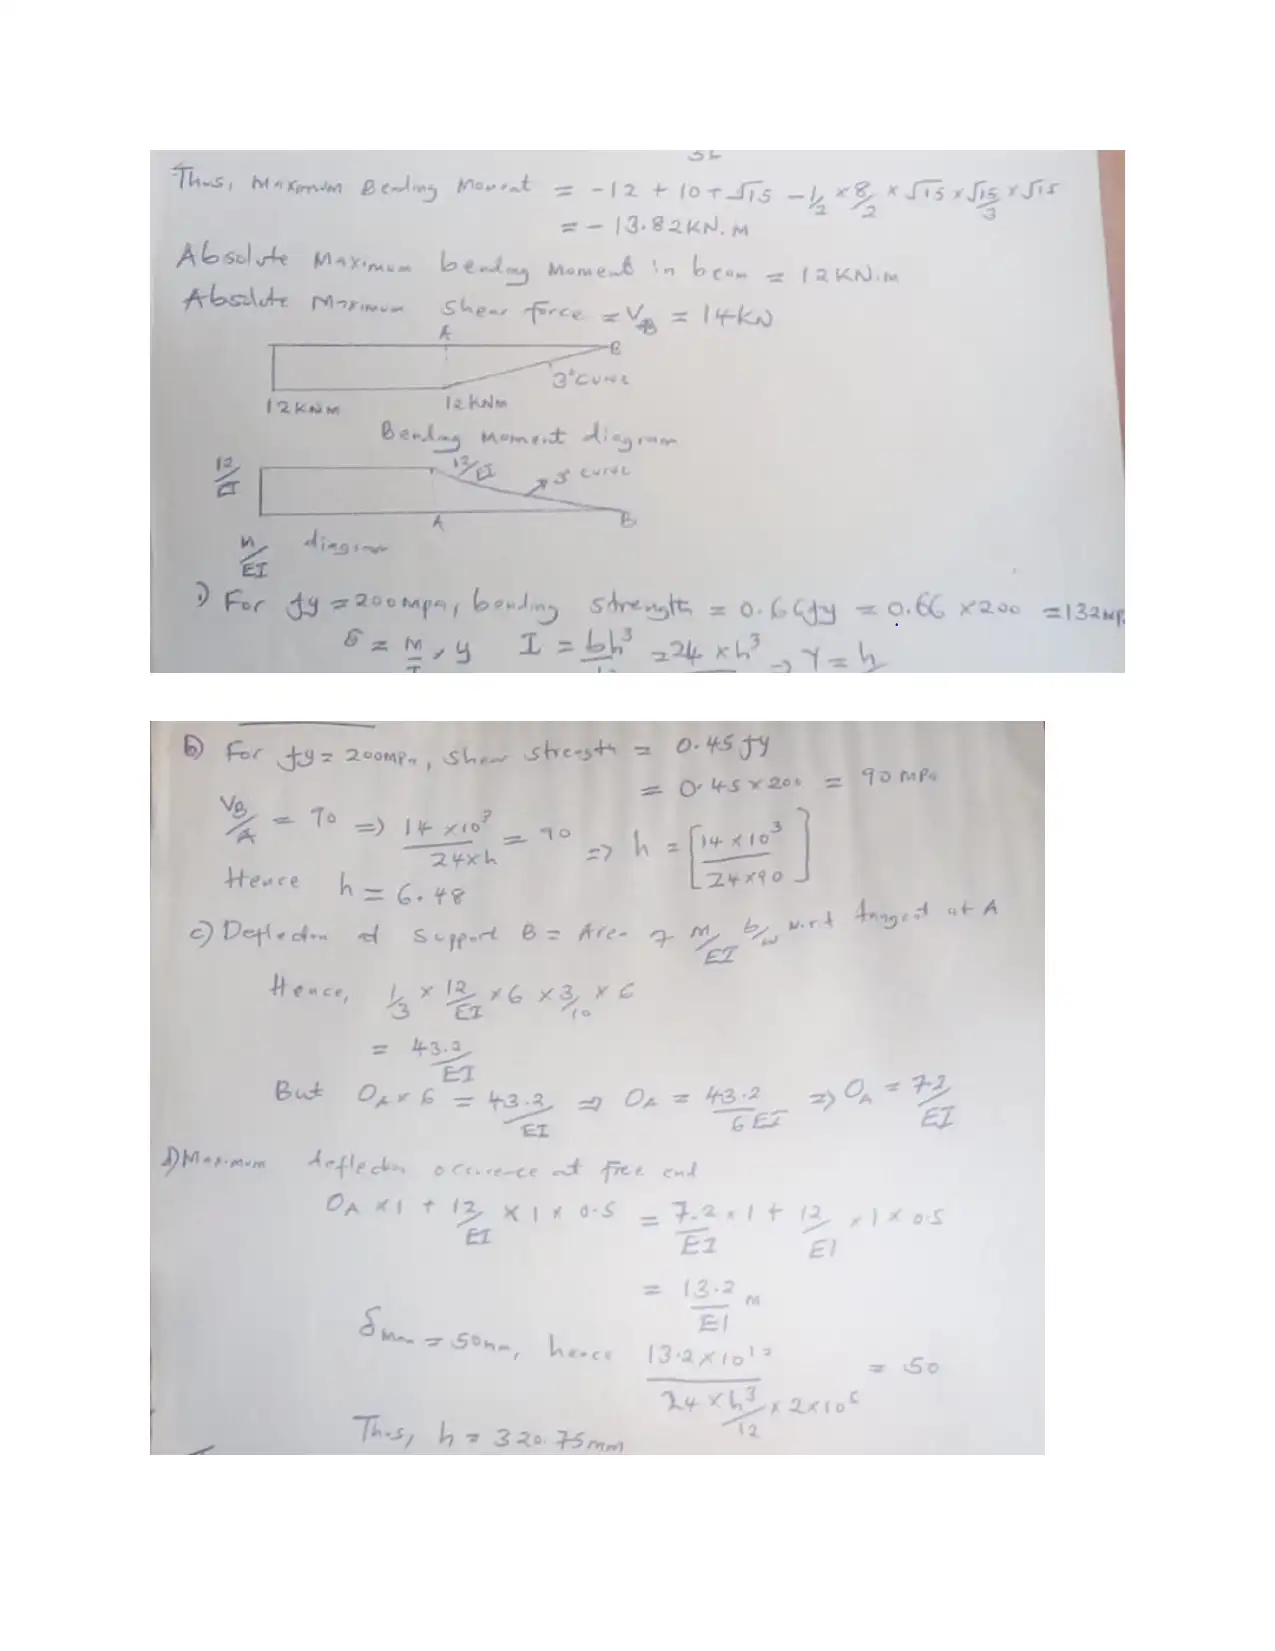 Thus, Maximum Bending Moment = -12 + 10 + √15 - 1/2 × 8/2 × √15 × √15/3 × √15
= - 13.82KN.m
Absolute Maximum bending Moment in beam = 12KN.m
Absolute Maximum Shear force = VB = 14KN
A
B
3° CURVE
12KNm 12KNm
Bending Moment diagram
12/EI 12/EI 3° CURVE
A B
M/EI diagram
1) For fy = 200mpa, bending strength = 0.66fy = 0.66 × 200 = 132MP
δ = M/I × y I = bh³ = 24 × h³ → Y = h
b) For fy = 200MPa, Shear strength = 0.45 fy
= 0.45 × 200 = 90 MPa
VB/A = 90 => 14 × 10³/24×h = 90 => h = [14 × 10³/24×90]
Hence h = 6.48
c) Deflection at Support B = Area of M/EI b/w w.r.t tangent at A
Hence, 1/3 × 12/EI × 6 × 3/10 × 6
= 43.2/EI
But OA × 6 = 43.2/EI => OA = 43.2/6EI => OA = 7.2/EI
d) Maximum deflection occurence at free end
OA × 1 + 12/EI × 1 × 0.5 = 7.2/EI × 1 + 12/EI × 1 × 0.5
= 13.2/EI m
δmax = 50mm, hence 13.2 × 10¹²/24 × h³/12 × 2×10⁵ = 50
Thus, h = 320.75mm